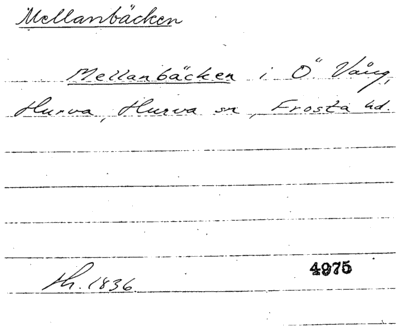 Mellanbäcken
Mellanbäcken i Ö Vång,
Hurva, Hurva sn, Frosta hd.
Sk. 1836
4975